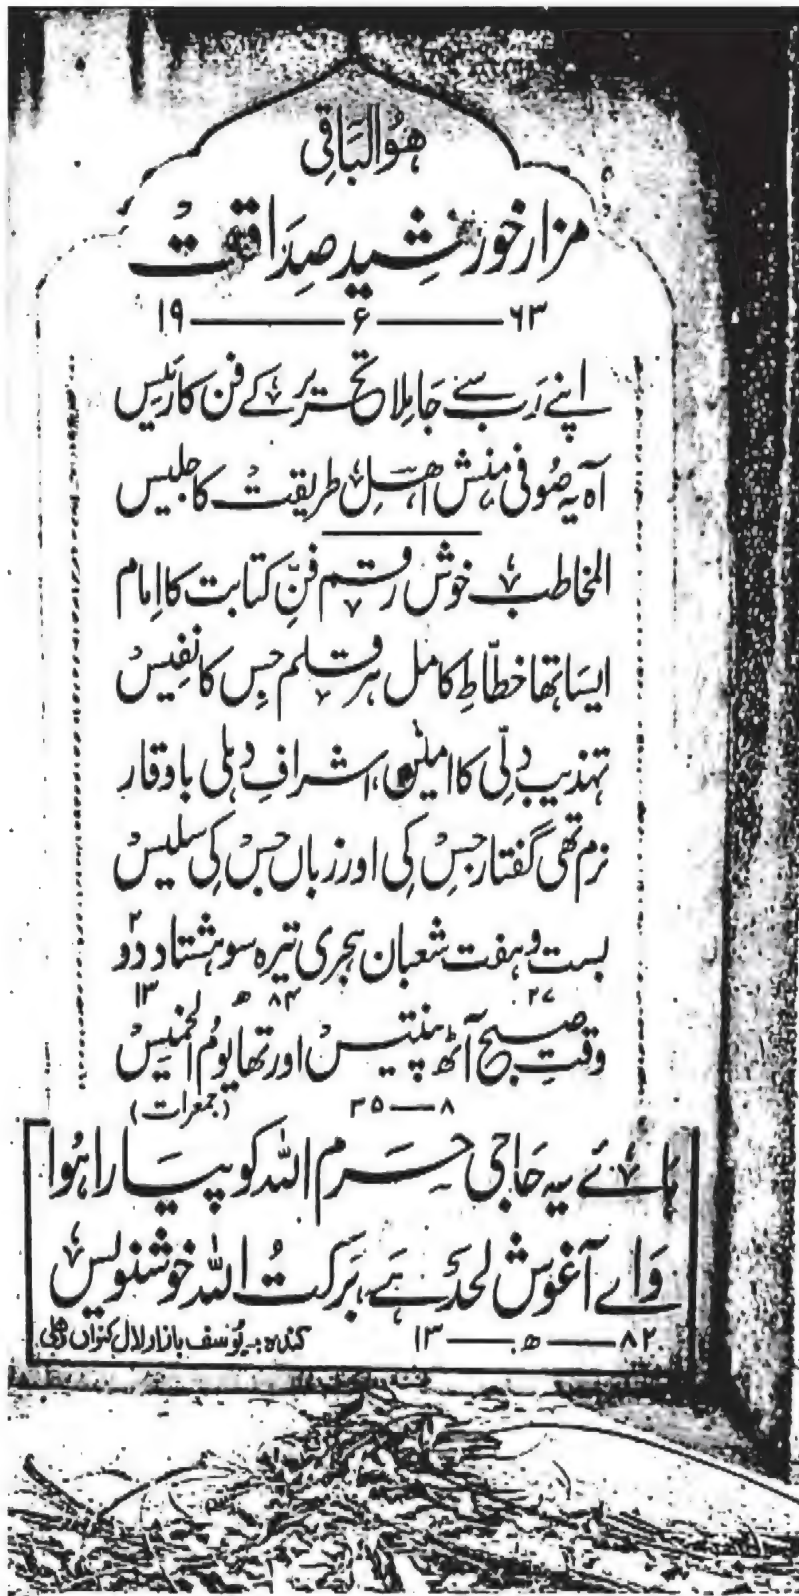 ھُوَالبَاقِی
مزار خورشید صِدَاقت
۱۹ — ء — ۶۳
اپنے رَب سے جَا مِلا تحریر کے فن کا رئیس
آہ یہ صُوفی منش اھلِ طریقت کا جلیس
المخاطب خوش رقم فنِّ کتابت کا اِمام
ایسا تھا خطّاطِ کامل ہر قلم جِس کا نفِیس
تہذیبِ دِلّی کا امیں، اشرافِ دہلی باوقار
نرم تھی گفتار جِس کی اور زباں جِس کی سلیس
بست و ہفت شعبان ہجری تیرہ سو ہشتاد دو ۲
۲۷ ۸۲ ھ ۱۳
وقتِ صبح آٹھ پنتیس اور تھا یومُ الخمیس
۸ — ۳۵ (جمعرات)
ہائے یہ حَاجی حَرم اللہ کو پیارا ہُوا
وَاے آغوشِ لحد ہَے، بَرکتُ اللہ خوشنویس
۸۲ — ھ — ۱۳ کندہ بہ یُوسف بازار لال کنواں دھلی